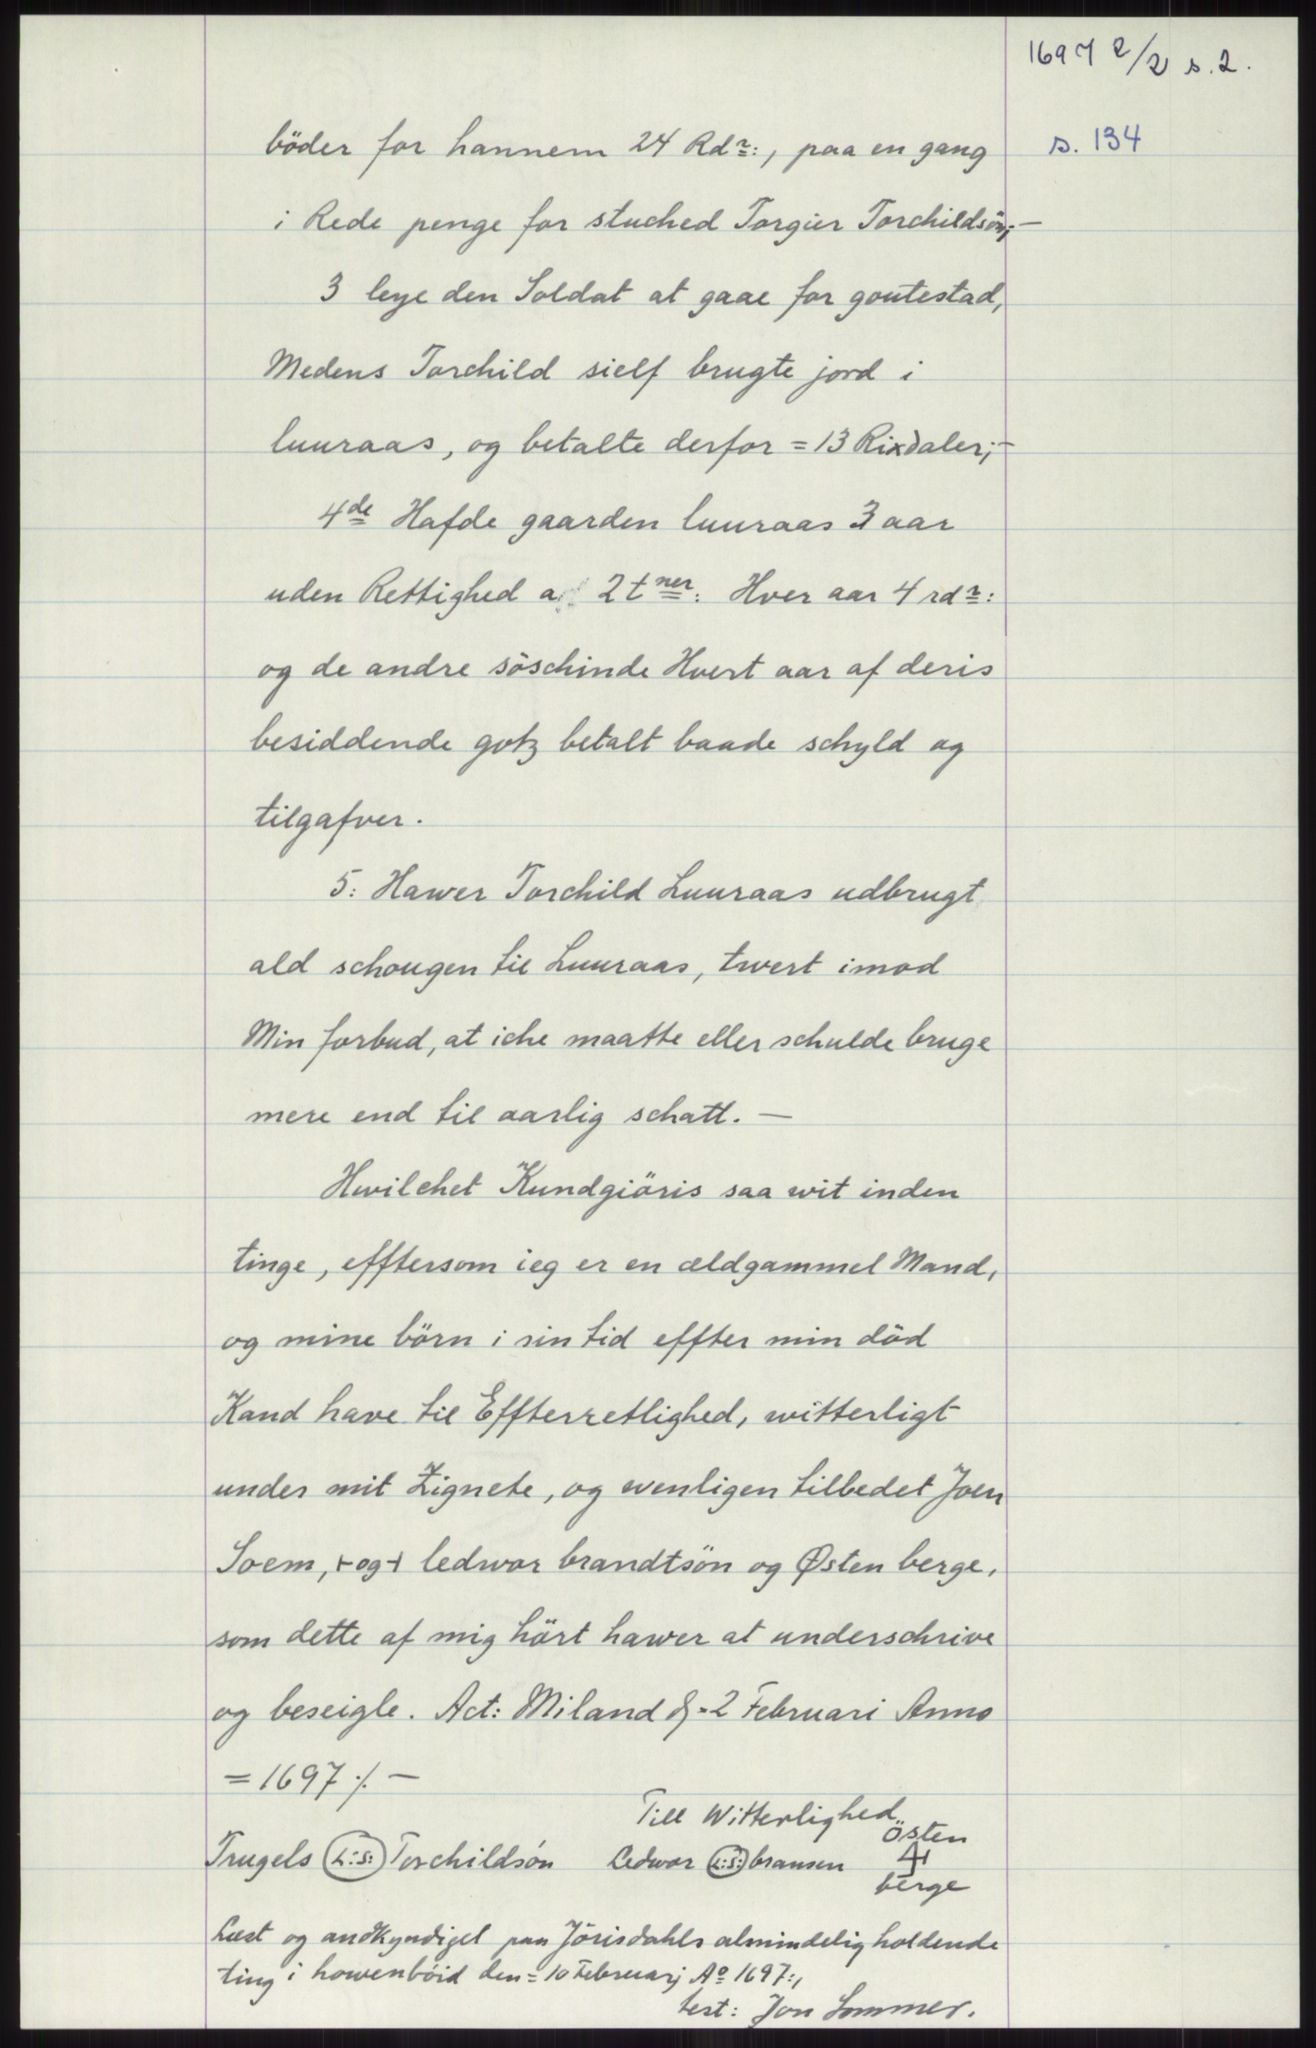 1697 2/2 s. 2.
s. 134
böder for hannem 24 Rdr:, paa en gang
i Rede penge for stuched Torgier Torchildsön;-
3 leye den Soldat at gaae for goutestad,
Medens Torchild sielf brugte jord i
luuraas, og betalte derfor = 13 Rixdaler;-
4de Hafde gaarden luuraas 3 aar
uden Rettighed a 2 tner: Hver aar 4 rdr:
og de andre söschinde Hvert aar af deris
besiddende gotz betalt baade schyld og
tilgafver.
5: Hawer Torchild Luuraas udbrugt
ald schougen til Luuraas, twert imod
Min forbud, at iche maatte eller schulde bruge
mere end til aarlig schatt. —
Hwilchet Kundgiöris saa wit inden
tinge, efftersom ieg er en ældgammel Mand,
og mine börn i sin tid effter min död
Kand have til Effterretlighed, witterligt
under mit Zignete, og wenligen tilbedet Joen
Soem, +og+ ledwor brandtsön og Østen berge,
som dette af mig hört hawer at underschrive
og beseigle. Act: Miland d-2 Februari Anno
= 1697 ./. —
Till Witterlighed
Trugels (L:S:) Torchildsön Ledwor (L:S:) bransen Østen
berge
Læst og andkyndiget paa Jörisdahls almindelig holdende
ting i howenböid den = 10 Februarj Ao 1697:,
test: Jon Sommer.